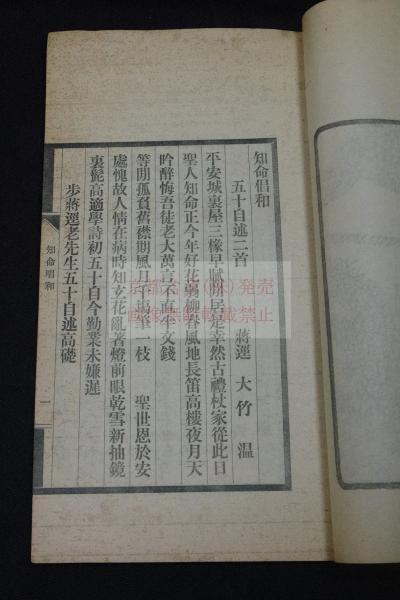 知命倡和
五十自述二首
蔣逕 大竹 溫
平安城裏屋三椽早賦閒居是幸然古禮杖家從此日
聖人知命正今年好花弱柳春風地長笛高樓夜月天
吟醉悔吾徒老大萬言 直 文錢
等閒孤負舊襟期風月 筆一枝 聖世恩於安
處愧故人情在病時知玄花亂著燈前眼乾雪新抽鏡
裏髭高適學詩初五十自今勤業未嫌遲
步蔣逕老先生五十自述高礎
知命昌和
一